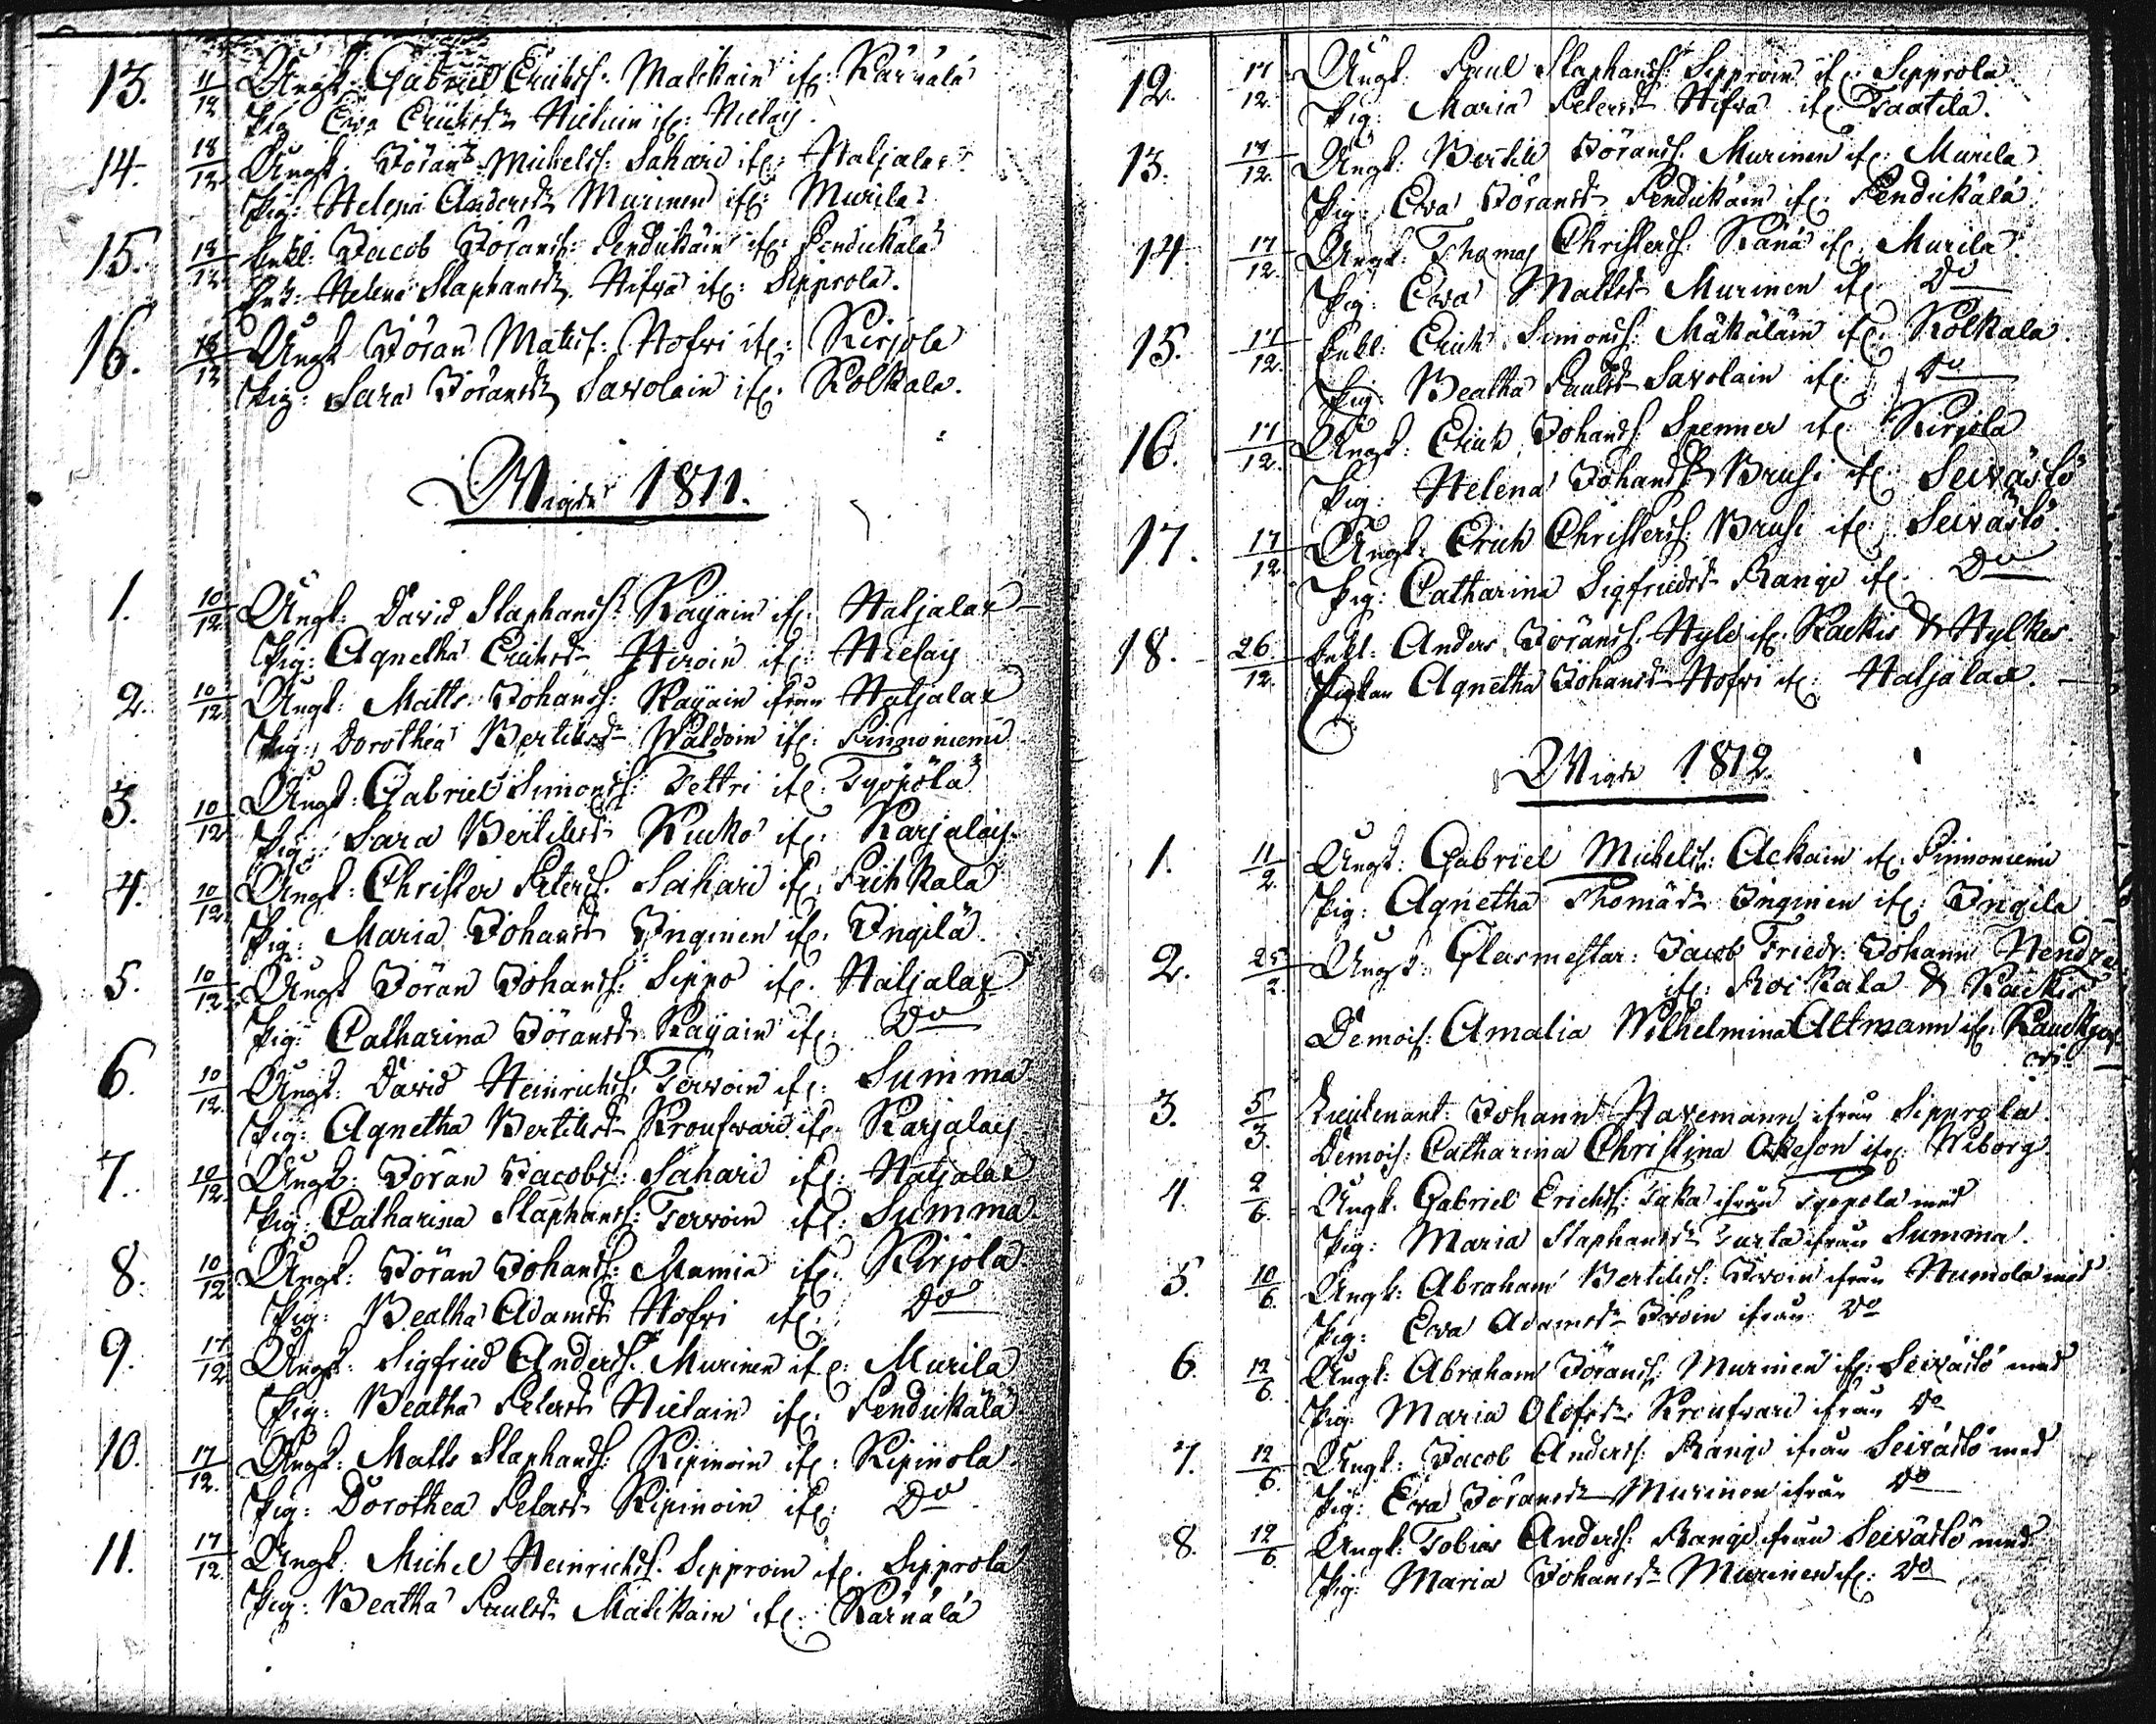 13. 11/12 Ungk: Gabriel Erichss: Matikain if: Kärnälä
Pig Eva Erichsdr Nielain if: Nielais.
14. 18/12 Ungk. Jöran Michelss: Sakari if: Hatjalax
Pig: Helena Andersdr Murinen if: Murila
15. 18/12 Enkl: Jacob Jöranss: Pendikäin if: Pendikälä
Enk: Helena Staphansdr Hifvä if: Sipprola.
16. 18/12 Ungk Jöran Matss: Hofri if: Kirjola
Pig: Sara Jöransdr Savolain if: Kolkala.
Wigde 1811.
1. 10/12 Ungk: David Staphanss: Kayain if: Hatjalax
Pig: Agnetha Erichsdr Hiroin if: Nielais
2. 10/12 Ungk: Matts Johanss: Kayain ifrån Hatjalax
Pig: Dorothea Bertilsdr Waldoin if: Pinnoniemi
3. 10/12 Ungk: Gabriel Simonss: Tettri if: Tyopölä
Pig: Sara Bertilsdr Kucko if: Karjalais
4. 10/12 Ungk: Christer Peterss. Sakari if: Pihkala
Pig: Maria Johansdr Inginen if: Ingilä.
5. 10/12 Ungk Jöran Johanss: Sippo if. Hatjalax
Pig: Catharina Jöransdr Kayain if: Do
6. 10/12 Ungk: David Heinrichss. Tervoin if: Summa
Pig: Agnetha Bertilsdr Kroufvari if: Karjalais
7. 10/12 Ungk: Jöran Jacobss: Sakari if: Hatjalax
Pig: Catharina Staphanss: Tervoin if: Summa.
8. 10/12 Ungk: Jöran Johanss: Mamia if: Kirjola
Pig: Beatha Adamsdr Hofri if: Do
9. 17/12 Ungk: Sigfried Anderss. Murinen if: Murila
Pig: Beatha Petersdr Nielain if: Pendikälä
10. 17/12 Ungk: Matts Staphanss: Kipinoin if: Kipinola
Pig: Dorothea Petersdr Kipinoin if: Do
11. 17/12 Ungk: Michel Heinrichss. Sipproin if. Sipprola
Pig: Beatha Paulsdr Matikain if: Kärnälä
12. 17/12 Ungk: Paul Staphanss. Sipproin if: Sipprola
Pig: Maria Petersdr Hifvä if: Taatila.
13. 17/12 Ungk: Bertill Jöranss. Murinen if: Murila
Pig: Eva Jöransdr Pendikäin if: Pendikälä.
14. 17/12 Ungk: Thomas Christerss. Känä if: Murila
Pig: Eva Mattsdr Murinen if: Do
15. 17/12 Enkl: Erich Simonss: Mäkäläin if: Kolkala.
Pig: Beatha Paulsdr Savolain if: Do
16. 17/12 Ungk: Erich Johanss: Spenner if: Kirjola
Pig: Helena Johansdr Brusi if: Seivästö
17. 17/12 Ungk: Erich Christerss. Brusi if: Seivästö
Pig: Catharina Sigfriedsdr Rangi if: Do
18. 26/12 Enkl: Anders Jöranss. Hyle if. Rackis & Hylkes.
Pigkan Agnetha Johansdr Hofri if: Hatjalax.
Wigde 1812.
1. 11/2 Ungk: Gabriel Michelss: Ackain if: Pinnoniemi
Pig: Agnetha Thomädr Inginen if: Ingila
2. 25/2 Ungk: Glasmestar: Jacob Friedr: Johann
if: Roikala & Rackis
Demois: Amalia Wilhelmina Altmann if:
3. 5/3 Lieutenant: Johann Havemann ifrån Sipprola.
Demois: Catharina Christina Akeson if: Wiborg.
4. 2/6 Ungk: Gabriel Erichss: Taka ifrån Tyopola med
Pig: Maria Staphansdr Turta ifrån Summa.
5. 10/6 Ungk: Abraham Bertilss: Ivoin ifrån Humola med
Pig: Eva Adamsdr Ivoin ifrån Do
6. 12/6 Ungk: Abraham Jöranss: Murinen if: Seivästö med
Pig: Maria Olofsdr Kroufvari ifrån Do
7. 12/6 Ungk: Jacob Anderss: Rangi ifrån Seivästö med
Pig: Eva Jöransdr Murinen ifrån Do
8. 12/6 Ungk: Tobias Anderss: Rangi ifrån Seivästö med
Pig: Maria Johansdr Murinen if: Do